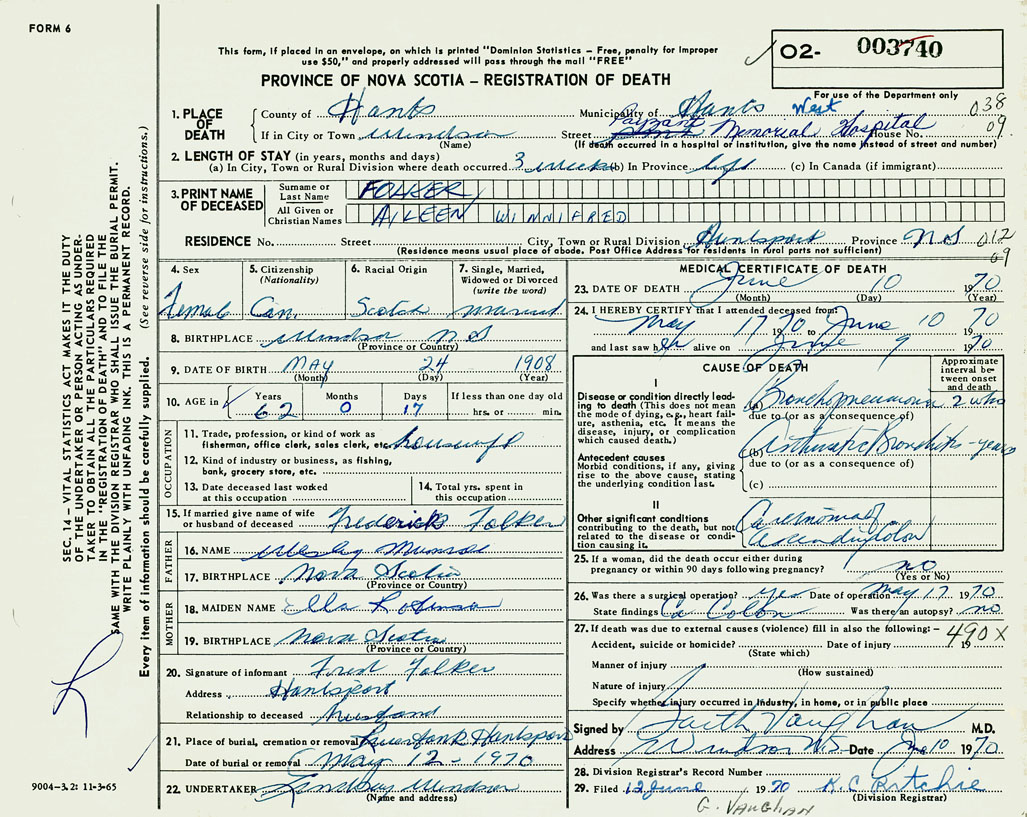 FORM 6
This form, if placed in an envelope, on which is printed "Dominion Statistics – Free, penalty for improper
use $50," and properly addressed will pass through the mail "FREE"
O2- 003740
PROVINCE OF NOVA SCOTIA – REGISTRATION OF DEATH
For use of the Department only
1. PLACE OF DEATH
County of Hants Municipality of Hants West 038
If in City or Town Windsor Street Payzant Memorial Hospital House No. 09
(Name) (If death occurred in a hospital or institution, give the name instead of street and number)
2. LENGTH OF STAY (in years, months and days)
(a) In City, Town or Rural Division where death occurred 3 weeks (b) In Province life (c) In Canada (if immigrant)
3. PRINT NAME OF DECEASED
Surname or Last Name FOLKER
All Given or Christian Names AILEEN WINNIFRED
RESIDENCE No. Street City, Town or Rural Division Hantsport Province N S 012
(Residence means usual place of abode. Post Office Address for residents in rural parts not sufficient) 69
4. Sex Female
5. Citizenship (Nationality) Can.
6. Racial Origin Scotch
7. Single, Married, Widowed or Divorced (write the word) married
8. BIRTHPLACE Windsor N S
(Province or Country)
9. DATE OF BIRTH MAY 24 1908
(Month) (Day) (Year)
10. AGE in Years 62 Months 0 Days 17 If less than one day old
hrs. or min.
OCCUPATION
11. Trade, profession, or kind of work as
fisherman, office clerk, sales clerk, etc. housewife
12. Kind of industry or business, as fishing,
bank, grocery store, etc.
13. Date deceased last worked
at this occupation
14. Total yrs. spent in
this occupation
15. If married give name of wife
or husband of deceased Frederick Folker
FATHER
16. NAME Wesley Munroe
17. BIRTHPLACE Nova Scotia
(Province or Country)
MOTHER
18. MAIDEN NAME Ella Robinson
19. BIRTHPLACE Nova Scotia
(Province or Country)
20. Signature of informant Fred Folker
Address Hantsport
Relationship to deceased husband
21. Place of burial, cremation or removal Riverbank Hantsport
Date of burial or removal May 12 - 1970
22. UNDERTAKER Lindsay Windsor
(Name and address)
MEDICAL CERTIFICATE OF DEATH
23. DATE OF DEATH June 10 1970
(Month) (Day) (Year)
24. I HEREBY CERTIFY that I attended deceased from:
May 17 1970 to June 10 1970
and last saw her alive on June 9 1970
CAUSE OF DEATH
Approximate interval between onset and death
I
Disease or condition directly leading
to death (This does not mean
the mode of dying, e.g., heart failure,
asthenia, etc. It means the
disease, injury, or complication
which caused death.)
(a) Bronchopneumonia 2 wks
due to (or as a consequence of)
Antecedent causes
Morbid conditions, if any, giving
rise to the above cause, stating
the underlying condition last.
(b) Asthmatic Bronchitis - years
due to (or as a consequence of)
(c)
II
Other significant conditions
contributing to the death, but not
related to the disease or condition
causing it.
Carcinoma of
Ascending colon
25. If a woman, did the death occur either during
pregnancy or within 90 days following pregnancy? no
(Yes or No)
26. Was there a surgical operation? yes Date of operation May 17 1970
State findings Ca Colon Was there an autopsy? no
27. If death was due to external causes (violence) fill in also the following: – 490X
Accident, suicide or homicide? Date of injury 19
(State which)
Manner of injury
(How sustained)
Nature of injury
Specify whether injury occurred in industry, in home, or in public place
Signed by Garth Vaughan M.D.
Address Windsor N.S. Date June 10 1970
28. Division Registrar's Record Number
29. Filed 12 June 1970 K. C. Ritchie
(Division Registrar)
G. VAUGHAN
SEC. 14 – VITAL STATISTICS ACT MAKES IT THE DUTY
OF THE UNDERTAKER OR PERSON ACTING AS UNDERTAKER
TO OBTAIN ALL THE PARTICULARS REQUIRED
IN THE "REGISTRATION OF DEATH" AND TO FILE THE
SAME WITH THE DIVISION REGISTRAR WHO SHALL ISSUE THE BURIAL PERMIT.
WRITE PLAINLY WITH UNFADING INK. THIS IS A PERMANENT RECORD.
Every item of information should be carefully supplied. (See reverse side for instructions.)
9004-3.2: 11-3-65